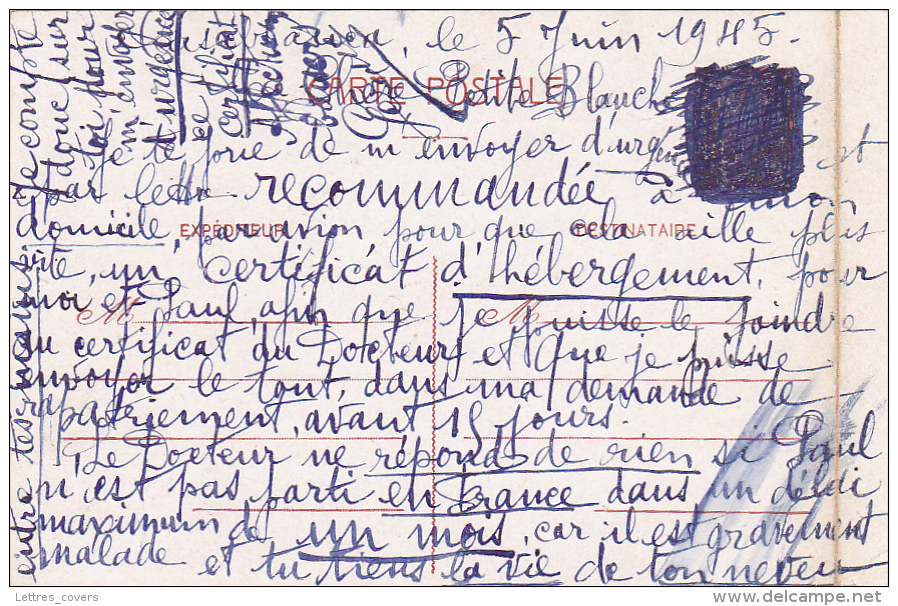 le 5 Juin 1945.
CARTE POSTALE
Chère Petite Blanche
je te prie de m'envoyer d'urgence et
par lettre recommandée à mon
domicile, par avion pour que cela aille plus
EXPÉDITEUR DESTINATAIRE
vite, un certificat d'hébergement, pour
moi et Paul, afin que je puisse le joindre
M M
au certificat du Docteur, et que je puisse
envoyer le tout, dans ma demande de
rapatriement, avant 15 jours.
Le Docteur ne répond de rien si Paul
n'est pas parti en France dans un délai
maximum de un mois, car il est gravement
malade et tu tiens la vie de ton neveu
entre tes mains.
Je compte
donc sur
toi pour
m'envoyer
d'urgence
ce certificat
Lettres_covers
delcampe.net